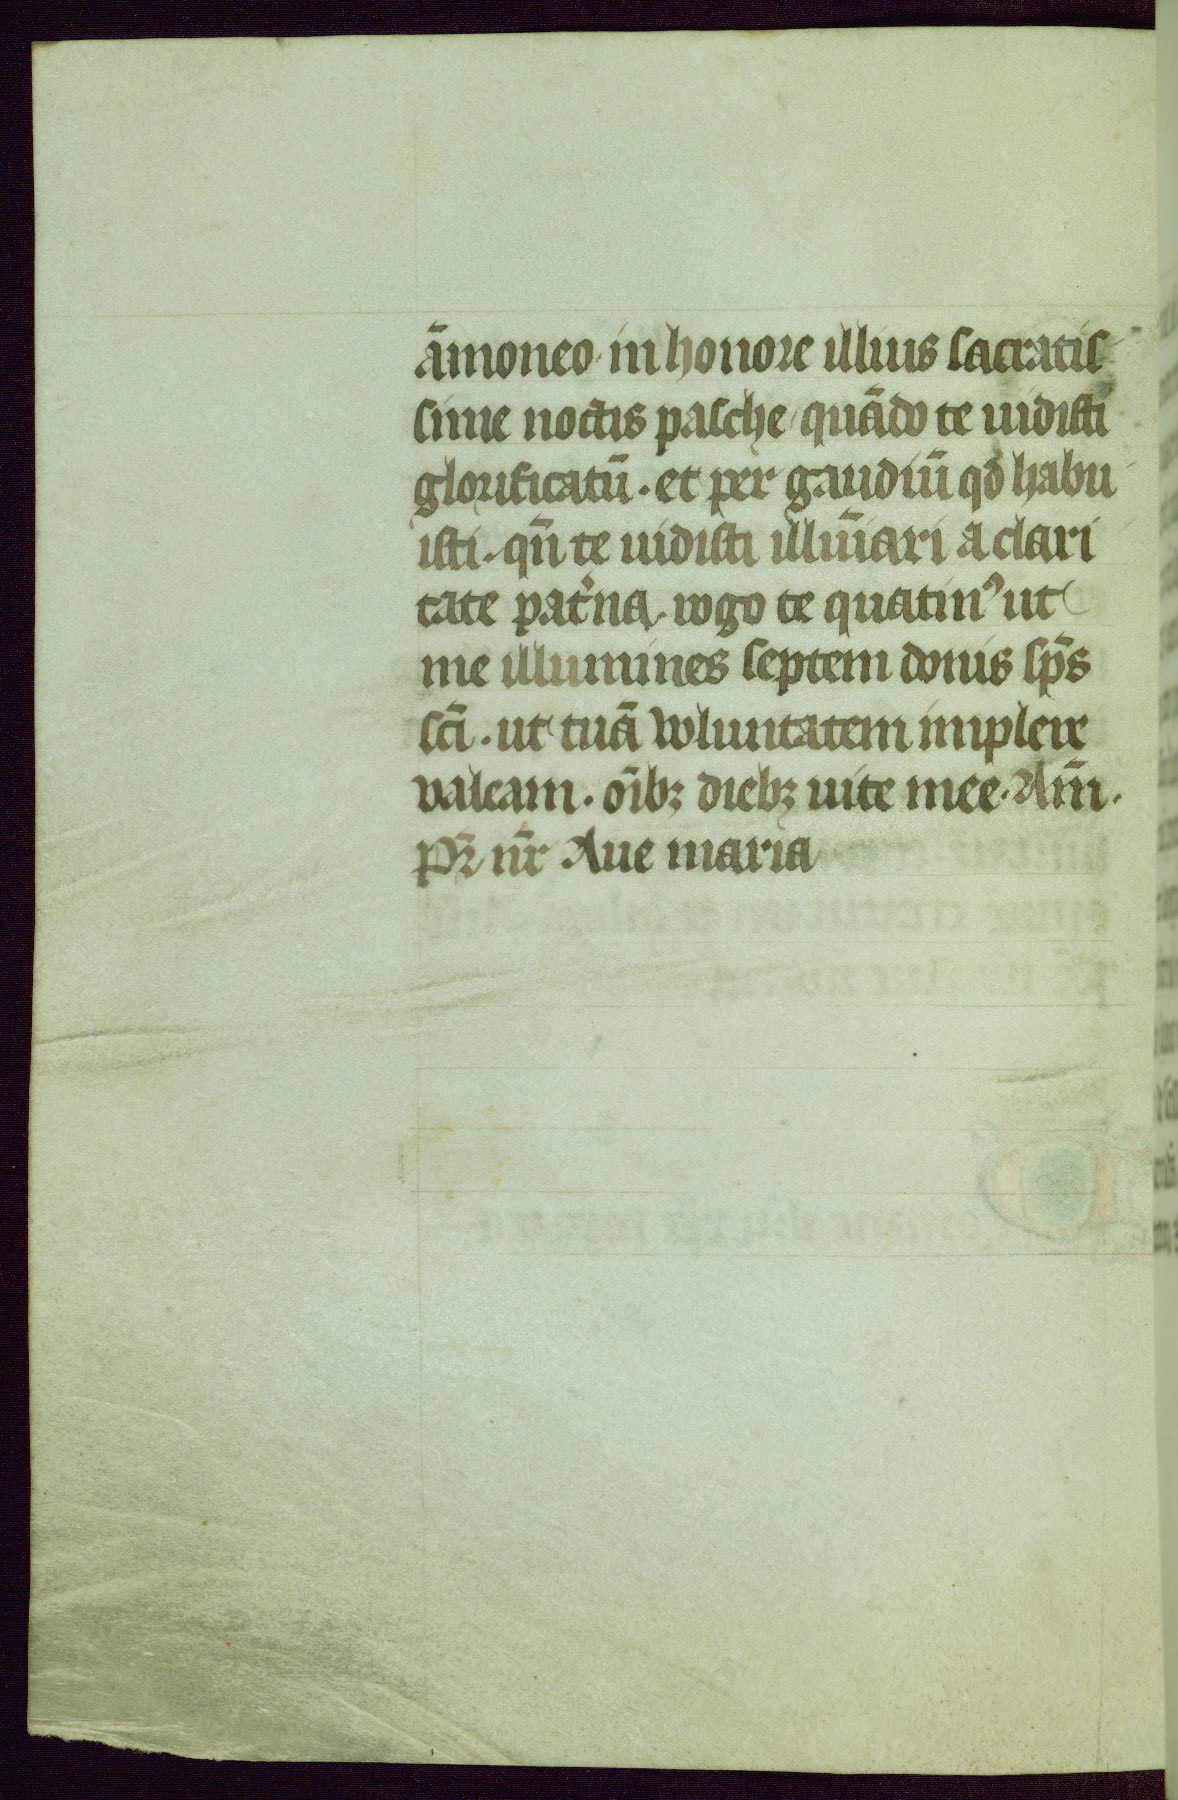 āmoneo · in honore illius sacratis
sime noctis pasche / quādo te uidisti
glorificatū · et per gaudiū qd̄ habu
isti · qn̄ te uidisti illūiari a clari
tate pat̓na · rogo te quatin⁹ ut
me illumines septem donis sp̄s
sc̄i · ut tuā voluntatem implere
valeam · oībꝫ diebꝫ uite mee · Am̄ ·
pr̄ nr̄ Aue maria